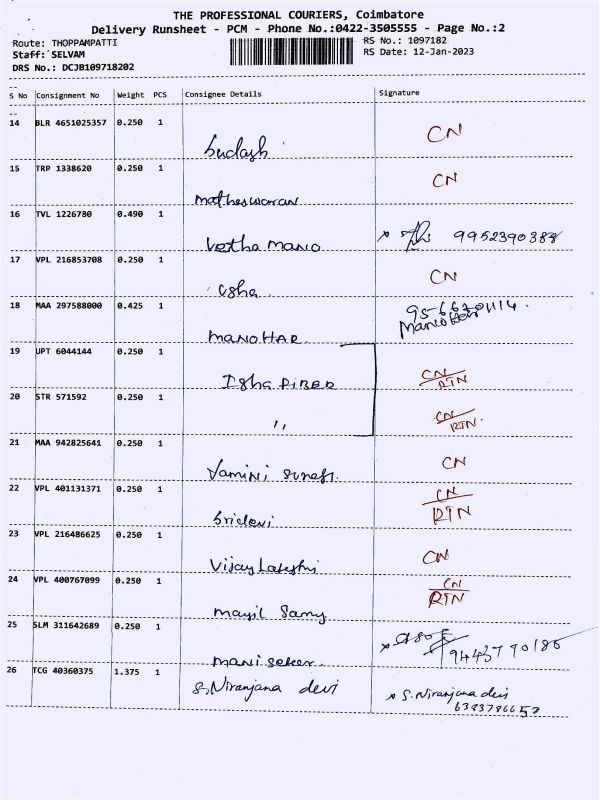 THE PROFESSIONAL COURIERS, Coimbatore
Delivery Runsheet - PCM - Phone No.:0422-3505555 - Page No.:2
Route: THOPPAMPATTI RS No.: 1097182
Staff: SELVAM RS Date: 12-Jan-2023
DRS No.: DCJB109718202
S No Consignment No Weight PCS Consignee Details Signature
14 BLR 4651025357 0.250 1 CN
15 TRP 1338620 0.250 1 CN
matheswaran
16 TVL 1226780 0.490 1
Vetha Mano 9952390388
17 VPL 216853708 0.250 1 CN
Usha
18 MAA 297588000 0.425 1
MANOHAR
19 UPT 6044144 0.250 1
Isha FIBER CN/RTN
20 STR 571592 0.250 1
,, CN/RTN
21 MAA 942825641 0.250 1 CN
Yamini
22 VPL 401131371 0.250 1 CN
Sridevi RTN
23 VPL 216486625 0.250 1 CN
Vijay Lakshmi
24 VPL 400767099 0.250 1 CN
mayil Samy RTN
25 SLM 311642689 0.250 1
mani seker
26 TCG 40360375 1.375 1
S.Niranjana devi S.Niranjana devi